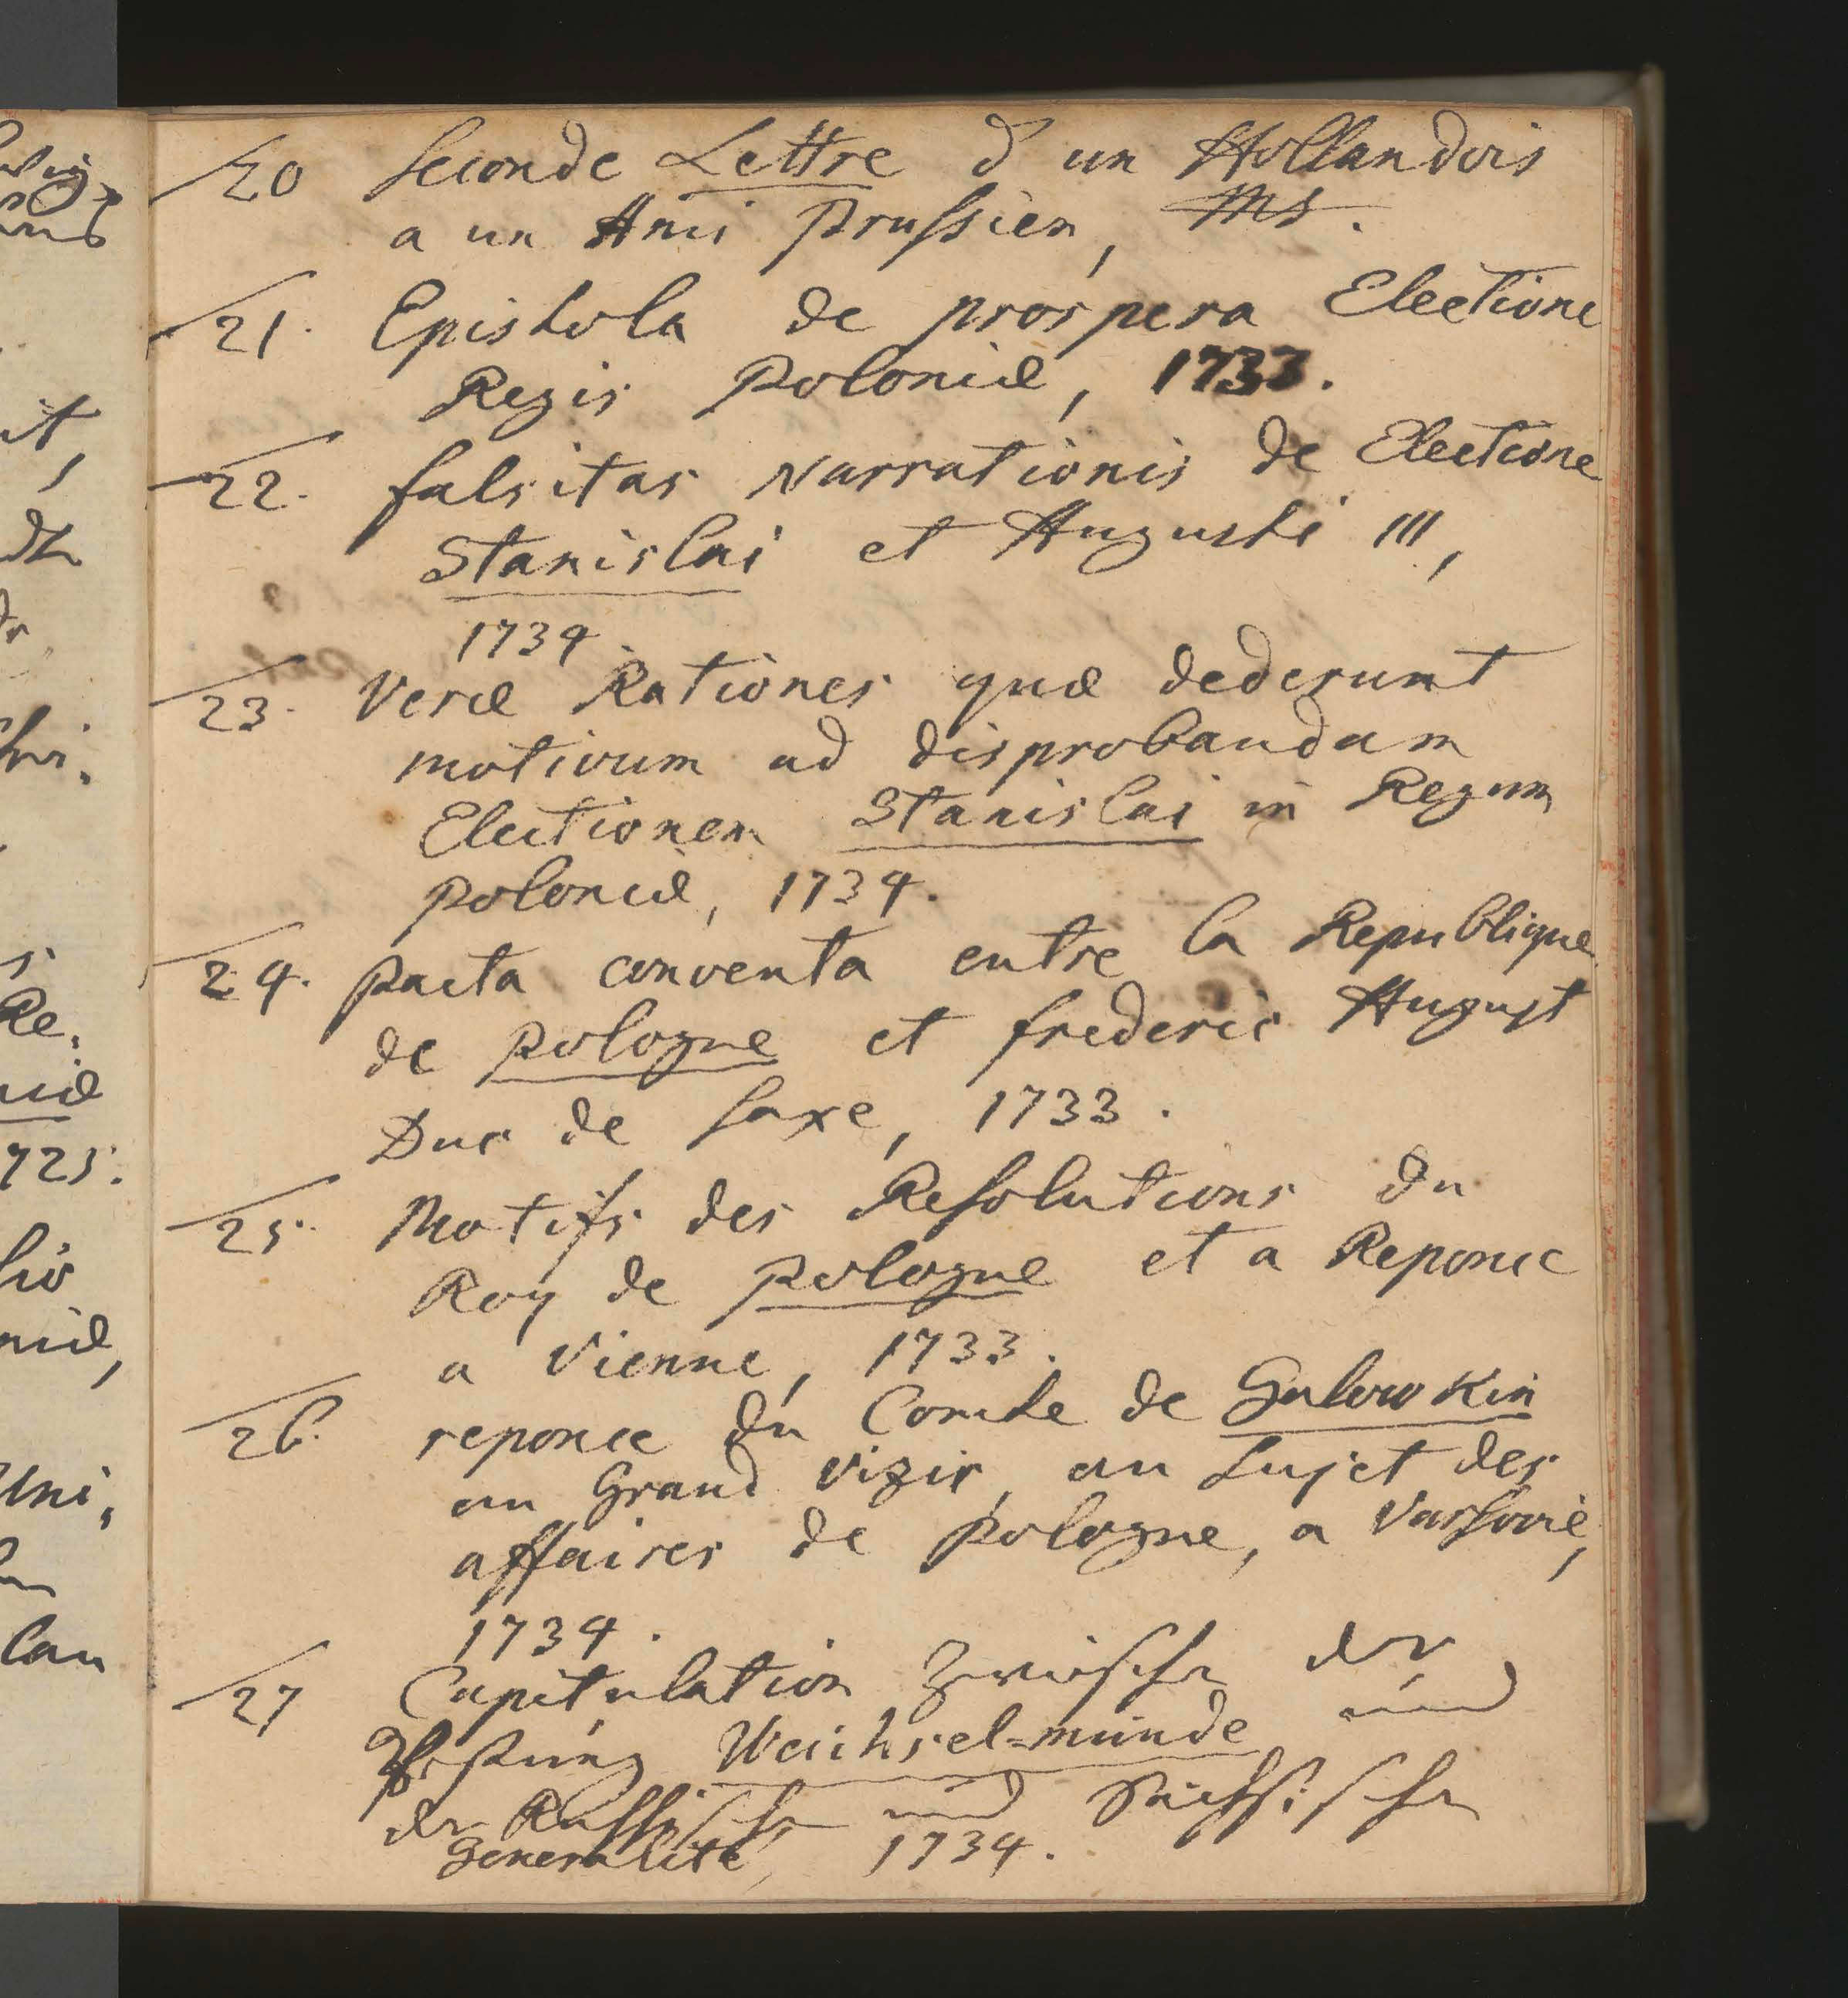 20 Seconde Lettre d'un Hollandois
a un Ami Prussien, Ms.
21. Epistola de prospera Electione
Regis Poloniæ, 1733.
22. falsitas Narrationis de Electione
Stanislai et Augusti III,
1734.
23. Veræ Rationes quæ dederunt
motivum ad disprobandam
Electionem Stanislai in Regem
Poloniæ, 1734.
24. Pacta conventa entre la Republique
de Pologne et frederic August
Duc de Saxe, 1733.
25. Motifs des Resolutions du
Roy de Pologne et a Reponce
a Vienne, 1733.
26. reponce du Comte de Golowkin
au Grand Vizir, au Sujet des
affaires de Pologne, a Varsovie,
1734.
27 Capitulation zwischen der
Vestung Weichsel=münde und
der Russischen und Sächsischen
Generalité, 1734.